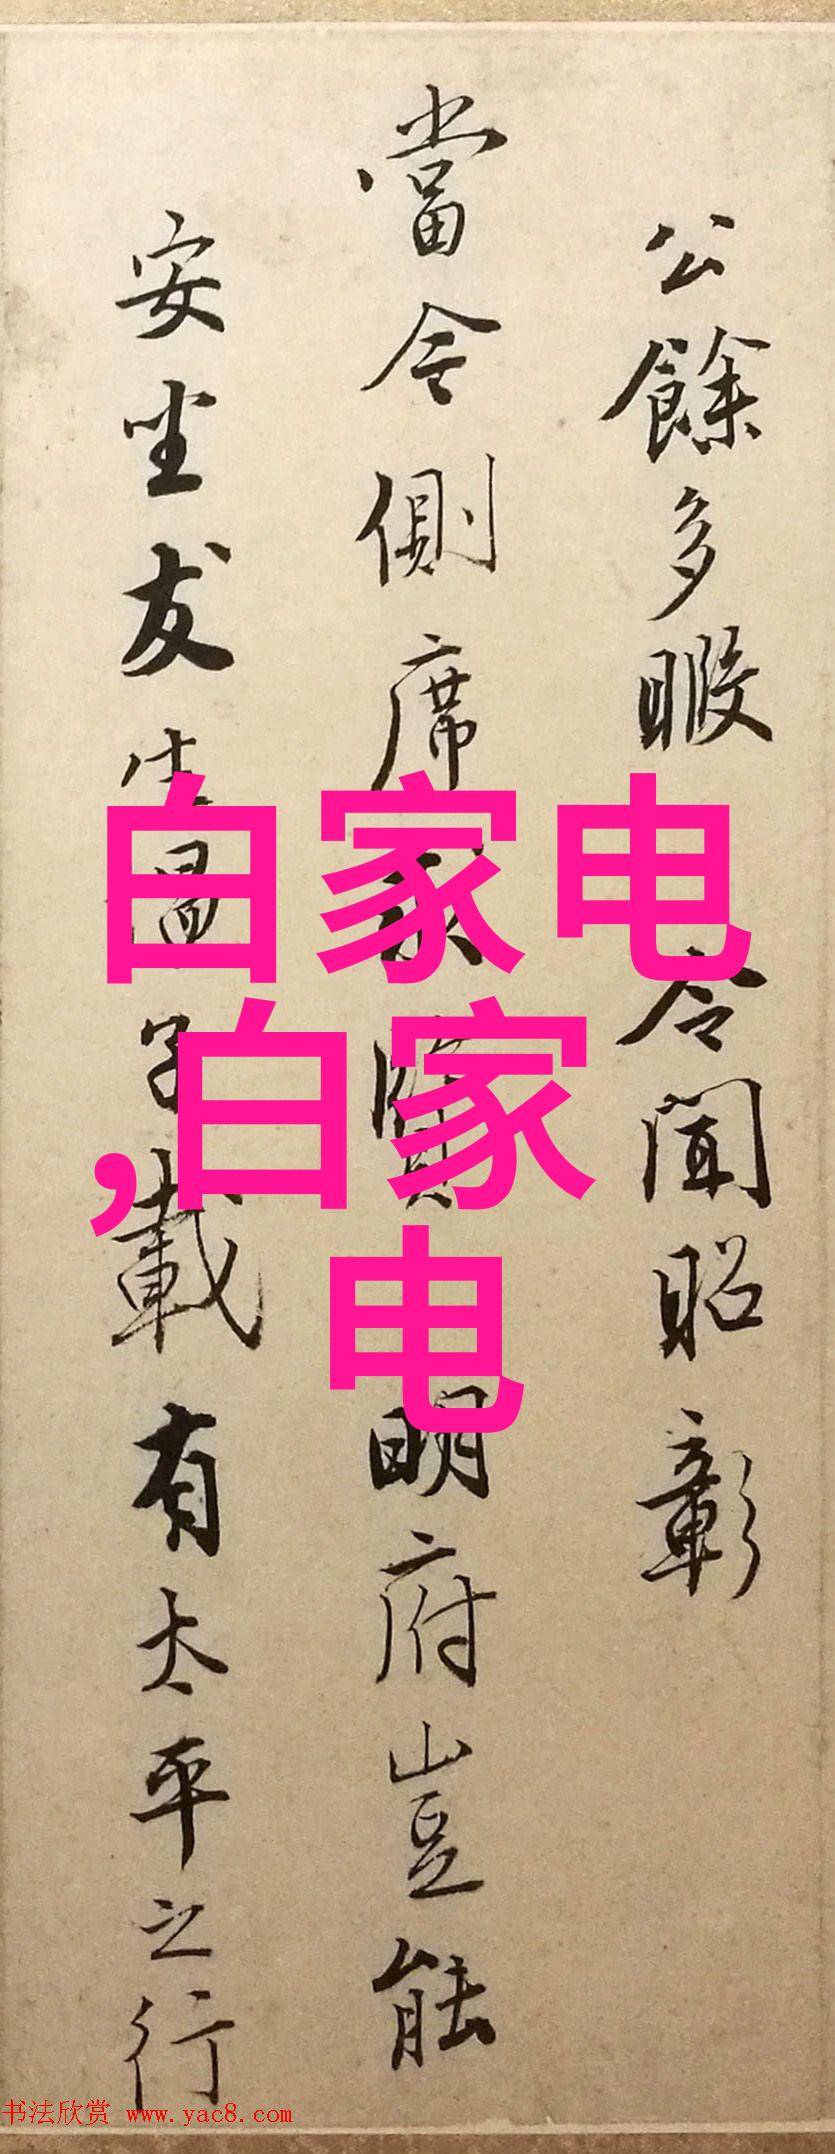 公餘多暇 令聞昭彰
當今側席求賢 明府豈能
安坐友生湯子載有太平之行
白家电
,白家
电
书法欣赏 www.yac8.com